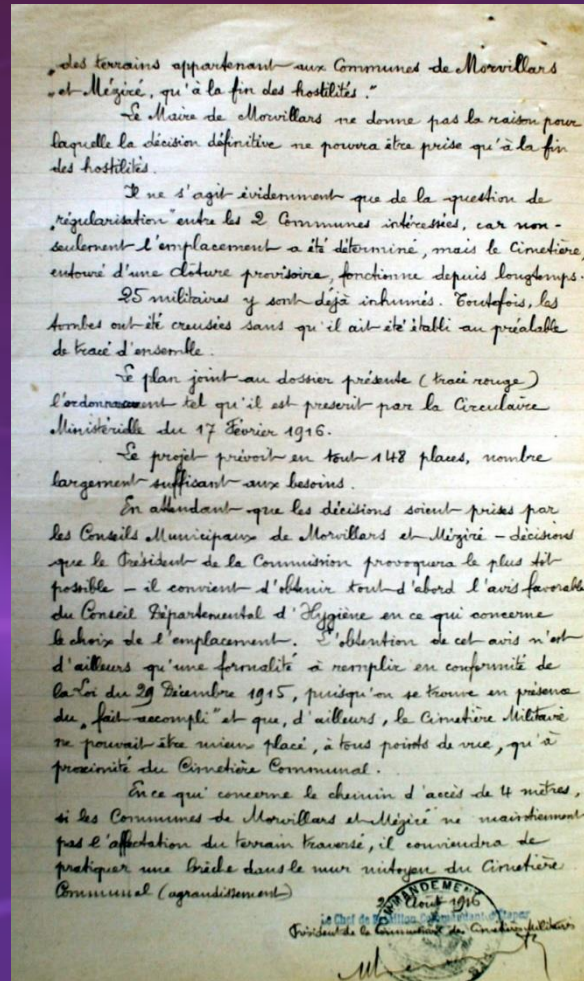 „des terrains appartenant aux Communes de Morvillars
„et Méziré, qu'à la fin des hostilités."
Le Maire de Morvillars ne donne pas la raison pour
laquelle la décision définitive ne pourra être prise qu'à la fin
des hostilités.
Il ne s'agit évidemment que de la question de
„régularisation" entre les 2 Communes intéressées, car non-
seulement l'emplacement a été déterminé, mais le Cimetière,
entouré d'une clôture provisoire, fonctionne depuis longtemps.
25 militaires y sont déjà inhumés. Toutefois, les
tombes ont été creusées sans qu'il ait été établi au préalable
de tracé d'ensemble.
Le plan joint au dossier présente (tracé rouge)
l'ordonnancement tel qu'il est prescrit par la Circulaire
Ministérielle du 17 Février 1916.
Le projet prévoit en tout 148 places, nombre
largement suffisant aux besoins.
En attendant que les décisions soient prises par
les Conseils Municipaux de Morvillars et Méziré – décisions
que le Président de la Commission provoquera le plus tôt
possible – il convient d'obtenir tout d'abord l'avis favorable
du Conseil Départemental d'Hygiène en ce qui concerne
le choix de l'emplacement. L'obtention de cet avis n'est
d'ailleurs qu'une formalité à remplir en conformité de
la Loi du 29 Décembre 1915, puisqu'on se trouve en présence
du „fait accompli" et que, d'ailleurs, le Cimetière Militaire
ne pouvait être mieux placé, à tous points de vue, qu'à
proximité du Cimetière Communal.
En ce qui concerne le chemin d'accès de 4 mètres,
si les Communes de Morvillars et Méziré ne maintiennent
pas l'affectation du terrain traversé, il conviendra de
pratiquer une brèche dans le mur mitoyen du Cimetière
Communal (agrandissement)
Août 1916
Le Chef de Bataillon, Commandant d'Etapes
Président de la Commission de Cimetières Militaires